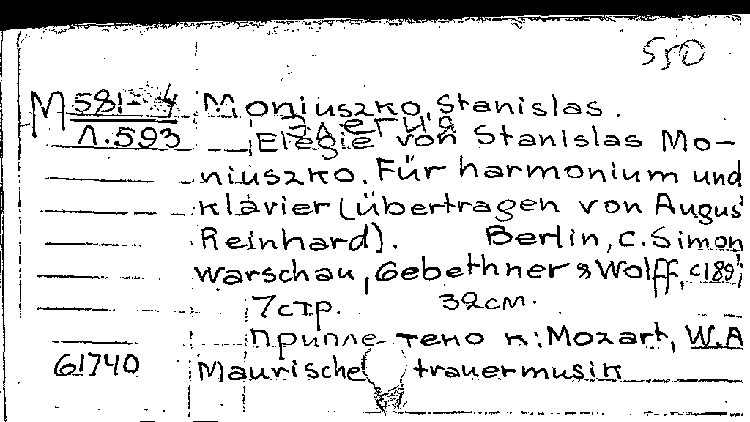 550
M 581-4
Л.593
Moniuszko, Stanislas.
Элегия
Elegie von Stanislas Mo-
niuszko. Für harmonium und
klavier (übertragen von Augus
Reinhard). Berlin, C. Simon
Warschau, Gebethner & Wolff, c189
7стр. 32см.
Приплетено к: Mozart, W.A
61740 Maurische trauermusik